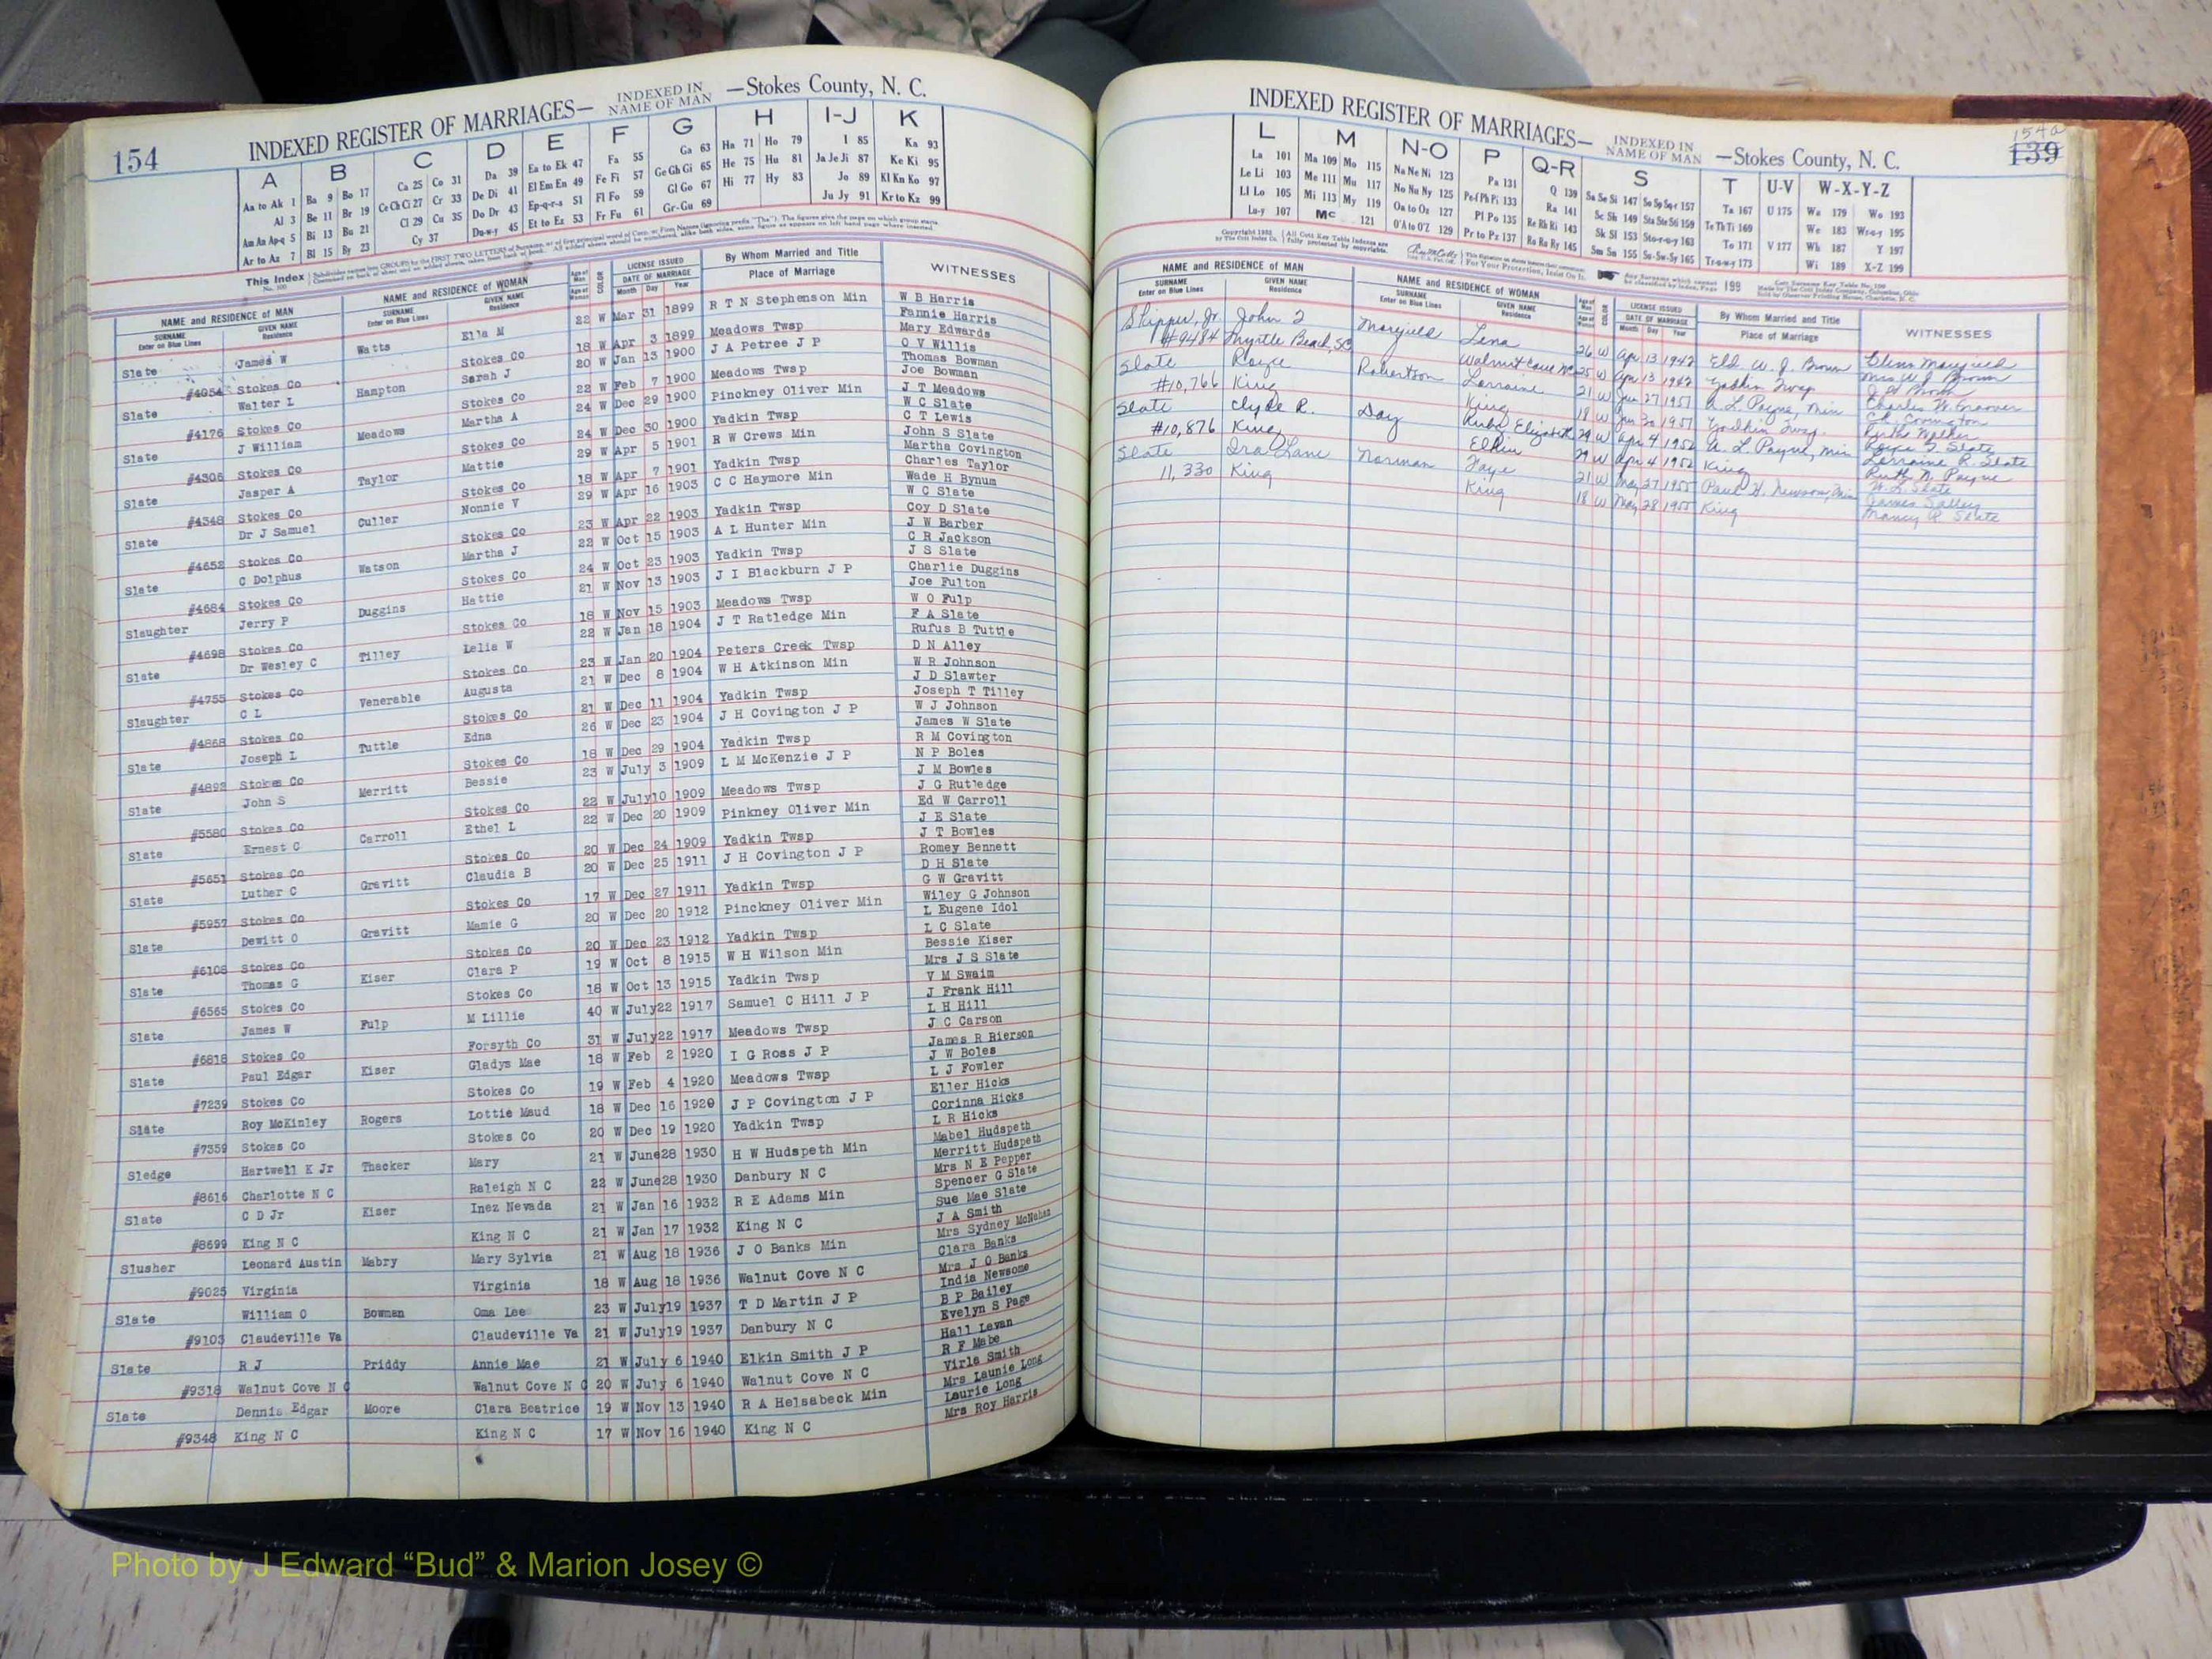 154
INDEXED REGISTER OF MARRIAGES— INDEXED IN NAME OF MAN —Stokes County, N. C.
A B C D E F G H I-J K
Aa to Ak 1 Ba 9 Bo 17 Ca 25 Co 31 Da 39 Ea to Ek 47 Fa 55 Ga 63 Ha 71 Ho 79 I 85 Ka 93
Al 3 Be 11 Br 19 Ce Ch Ci 27 Cr 33 De Di 41 El Em En 49 Fe Fi 57 Ge Gh Gi 65 He 75 Hu 81 Ja Je Ji 87 Ke Ki 95
Am An Ap-q 5 Bi 13 Bu 21 Cl 29 Cu 35 Do Dr 43 Ep-q-r-s 51 Fl Fo 59 Gl Go 67 Hi 77 Hy 83 Jo 89 Kl Kn Ko 97
Ar to Az 7 Bl 15 By 23 Cy 37 Du-w-y 45 Et to Ez 53 Fr Fu 61 Gr-Gu 69 Ju Jy 91 Kr to Kz 99
This Index
NAME and RESIDENCE OF MAN NAME and RESIDENCE OF WOMAN COLOR LICENSE ISSUED By Whom Married and Title WITNESSES
SURNAME GIVEN NAME SURNAME GIVEN NAME DATE OF MARRIAGE Place of Marriage
Enter on Blue Lines Residence Enter on Blue Lines Residence Month Day Year
Slate James W Watts Ella M 22 W Mar 31 1899 R T N Stephenson Min W B Harris
Fannie Harris
#4054 Stokes Co Stokes Co 18 W Apr 3 1899 Meadows Twsp Mary Edwards
Slate Walter L Hampton Sarah J 20 W Jan 13 1900 J A Petree J P O V Willis
Thomas Bowman
#4176 Stokes Co Stokes Co 22 W Feb 7 1900 Meadows Twsp Joe Bowman
Slate J William Meadows Martha A 24 W Dec 29 1900 Pinckney Oliver Min J T Meadows
W C Slate
#4306 Stokes Co Stokes Co 24 W Dec 30 1900 Yadkin Twsp C T Lewis
Slate Jasper A Taylor Mattie 29 W Apr 5 1901 R W Crews Min John S Slate
Martha Covington
#4348 Stokes Co Stokes Co 18 W Apr 7 1901 Yadkin Twsp Charles Taylor
Slate Dr J Samuel Culler Nonnie V 29 W Apr 16 1903 C C Haymore Min Wade H Bynum
W C Slate
#4652 Stokes Co Stokes Co 23 W Apr 22 1903 Yadkin Twsp Coy D Slate
Slate C Dolphus Watson Martha J 22 W Oct 15 1903 A L Hunter Min J W Barber
C R Jackson
#4684 Stokes Co Stokes Co 24 W Oct 23 1903 Yadkin Twsp J S Slate
Slaughter Jerry P Duggins Hattie 21 W Nov 13 1903 J I Blackburn J P Charlie Duggins
Joe Fulton
#4698 Stokes Co Stokes Co 18 W Nov 15 1903 Meadows Twsp W O Fulp
Slate Dr Wesley C Tilley Lelia W 22 W Jan 18 1904 J T Ratledge Min F A Slate
Rufus B Tuttle
#4755 Stokes Co Stokes Co 23 W Jan 20 1904 Peters Creek Twsp D N Alley
Slaughter C L Venerable Augusta 21 W Dec 8 1904 W H Atkinson Min W R Johnson
J D Slawter
#4868 Stokes Co Stokes Co 21 W Dec 11 1904 Yadkin Twsp Joseph T Tilley
Slate Joseph L Tuttle Edna 26 W Dec 23 1904 J H Covington J P W J Johnson
James W Slate
#4892 Stokes Co Stokes Co 18 W Dec 29 1904 Yadkin Twsp R M Covington
Slate John S Merritt Bessie 23 W July 3 1909 L M McKenzie J P N P Boles
J M Bowles
#5580 Stokes Co Stokes Co 22 W July 10 1909 Meadows Twsp J G Rutledge
Slate Ernest C Carroll Ethel L 22 W Dec 20 1909 Pinkney Oliver Min Ed W Carroll
J E Slate
#5651 Stokes Co Stokes Co 20 W Dec 24 1909 Yadkin Twsp J T Bowles
Slate Luther C Gravitt Claudia B 20 W Dec 25 1911 J H Covington J P Romey Bennett
D H Slate
#5957 Stokes Co Stokes Co 17 W Dec 27 1911 Yadkin Twsp G W Gravitt
Slate Dewitt O Gravitt Mamie G 20 W Dec 20 1912 Pinckney Oliver Min Wiley G Johnson
L Eugene Idol
#6108 Stokes Co Stokes Co 20 W Dec 23 1912 Yadkin Twsp L C Slate
Slate Thomas G Kiser Clara P 19 W Oct 8 1915 W H Wilson Min Bessie Kiser
Mrs J S Slate
#6565 Stokes Co Stokes Co 18 W Oct 13 1915 Yadkin Twsp V M Swaim
Slate James W Fulp M Lillie 40 W July 22 1917 Samuel C Hill J P J Frank Hill
L H Hill
#6818 Stokes Co Forsyth Co 31 W July 22 1917 Meadows Twsp J C Carson
Slate Paul Edgar Kiser Gladys Mae 18 W Feb 2 1920 I G Ross J P James R Rierson
J W Boles
#7239 Stokes Co Stokes Co 19 W Feb 4 1920 Meadows Twsp L J Fowler
Slate Roy McKinley Rogers Lottie Maud 18 W Dec 16 1920 J P Covington J P Eller Hicks
Corinna Hicks
#7359 Stokes Co Stokes Co 20 W Dec 19 1920 Yadkin Twsp L R Hicks
Sledge Hartwell K Jr Thacker Mary 21 W June 28 1930 H W Hudspeth Min Mabel Hudspeth
Merritt Hudspeth
#8616 Charlotte N C Raleigh N C 22 W June 28 1930 Danbury N C Mrs N E Pepper
Slate C D Jr Kiser Inez Nevada 21 W Jan 16 1932 R E Adams Min Spencer G Slate
Sue Mae Slate
#8699 King N C King N C 21 W Jan 17 1932 King N C J A Smith
Slusher Leonard Austin Mabry Mary Sylvia 21 W Aug 18 1936 J O Banks Min Mrs Sydney
Clara Banks
#9025 Virginia Virginia 18 W Aug 18 1936 Walnut Cove N C Mrs J O Banks
Slate William O Bowman Oma Lee 23 W July 19 1937 T D Martin J P India Newsome
B P Bailey
#9103 Claudeville Va Claudeville Va 21 W July 19 1937 Danbury N C Evelyn S Page
Slate R J Priddy Annie Mae 21 W July 6 1940 Elkin Smith J P Hall Levan
R F Mabe
#9318 Walnut Cove N C Walnut Cove N C 20 W July 6 1940 Walnut Cove N C Virle Smith
Slate Dennis Edgar Moore Clara Beatrice 19 W Nov 13 1940 R A Helsabeck Min Mrs Launie Long
Laurie Long
#9348 King N C King N C 17 W Nov 16 1940 King N C Mrs Roy Harris
154a
139
INDEXED REGISTER OF MARRIAGES— INDEXED IN NAME OF MAN —Stokes County, N. C.
L M N-O P Q-R S T U-V W-X-Y-Z
La 101 Ma 109 Mo 115 Na Ne Ni 123 Pa 131 Q 139 Sa Se Si 147 So Sp Sq-r 157 Ta 167 U 175 Wa 179 Wo 193
Le Li 103 Me 111 Mu 117 No Nu Ny 125 Pe Pf Ph Pi 133 Ra 141 Sc Sh 149 Sta Ste Sti 159 Te Th Ti 169 We 183 Wr-u-y 195
Ll Lo 105 Mi 113 My 119 Oa to Oz 127 Pl Po 135 Re Rh Ri 143 Sk Sl 153 Sto-r-u-y 163 To 171 V 177 Wh 187 Y 197
Lu-y 107 Mc 121 O'A to O'Z 129 Pr to Pz 137 Ro Ru Ry 145 Sm Sn 155 Su-Sw-Sy 165 Tr-u-w-y 173 Wi 189 X-Z 199
NAME and RESIDENCE OF MAN NAME and RESIDENCE OF WOMAN COLOR LICENSE ISSUED By Whom Married and Title WITNESSES
SURNAME GIVEN NAME SURNAME GIVEN NAME DATE OF MARRIAGE Place of Marriage
Enter on Blue Lines Residence Enter on Blue Lines Residence Month Day Year
Skipper, Jr. John Lena 26 W Apr. 13 1942 Eld. W. J. Brown Glenn
Mrs W J Brown
#9484 Myrtle Beach, SC Walnut Cove NC 25 W Apr 13 1942 Yadkin Twsp
Slate Royce Robertson Lorraine 21 W Jun 27 1951 A. L. Payne, Min Charles W. Groover
#10,766 King King 18 W Jun 30 1951 Yadkin Twsp.
Slate Clyde R. Day Ruby Elizabeth 29 W Apr 4 1952 A. L. Payne, Min
Lorraine R. Slate
#10,876 King Elkin 29 W Apr 4 1952 King Ruth N. Payne
Slate Ira Lane Norman Faye 21 W May 27 1955 Paul H. Newsom, Min W. L. Slate
11,330 King King 18 W May 28 1955 King Nancy R. Slate
Photo by J Edward “Bud” & Marion Josey ©